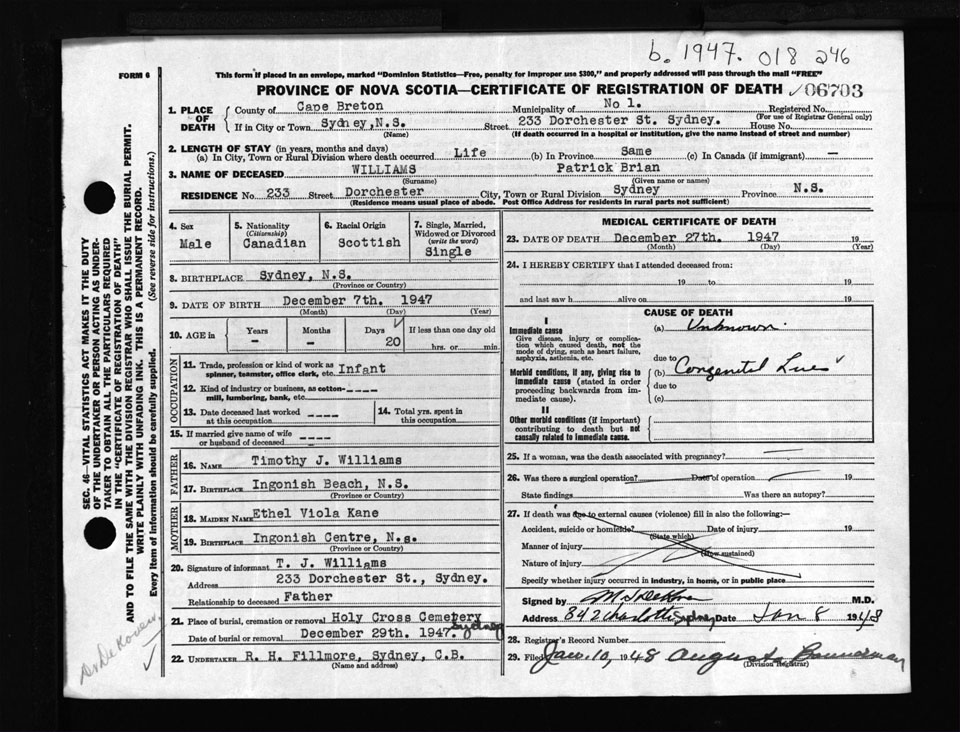 b. 1947. 018 246
FORM 6
This form if placed in an envelope, marked "Dominion Statistics—Free, penalty for improper use $300," and properly addressed will pass through the mail "FREE"
PROVINCE OF NOVA SCOTIA—CERTIFICATE OF REGISTRATION OF DEATH 06703
1. PLACE OF DEATH County of Cape Breton Municipality of No 1. Registered No.
(For use of Registrar General only)
If in City or Town Sydney, N.S. Street 233 Dorchester St. Sydney. House No.
(Name) (If death occurred in a hospital or institution, give the name instead of street and number)
2. LENGTH OF STAY (in years, months and days)
(a) In City, Town or Rural Division where death occurred Life (b) In Province Same (c) In Canada (if immigrant) —
3. NAME OF DECEASED WILLIAMS Patrick Brian
(Surname) (Given name or names)
RESIDENCE No. 233 Street Dorchester City, Town or Rural Division Sydney Province N.S.
(Residence means usual place of abode. Post Office Address for residents in rural parts not sufficient)
4. Sex Male
5. Nationality (Citizenship) Canadian
6. Racial Origin Scottish
7. Single, Married, Widowed or Divorced (write the word) Single
8. BIRTHPLACE Sydney, N.S.
(Province or Country)
9. DATE OF BIRTH December 7th. 1947
(Month) (Day) (Year)
10. AGE in Years - Months - Days 20 If less than one day old hrs. or min.
OCCUPATION
11. Trade, profession or kind of work as spinner, teamster, office clerk, etc. Infant
12. Kind of industry or business, as cotton-mill, lumbering, bank, etc. ----
13. Date deceased last worked at this occupation ----
14. Total yrs. spent in this occupation
15. If married give name of wife or husband of deceased ----
FATHER
16. NAME Timothy J. Williams
17. BIRTHPLACE Ingonish Beach, N.S.
(Province or Country)
MOTHER
18. MAIDEN NAME Ethel Viola Kane
19. BIRTHPLACE Ingonish Centre, N.s.
(Province or Country)
20. Signature of informant T. J. Williams
Address 233 Dorchester St., Sydney.
Relationship to deceased Father
21. Place of burial, cremation or removal Holy Cross Cemetery Sydney
Date of burial or removal December 29th. 1947.
22. UNDERTAKER R. H. Fillmore, Sydney, C.B.
(Name and address)
MEDICAL CERTIFICATE OF DEATH
23. DATE OF DEATH December 27th. 1947 19
(Month) (Day) (Year)
24. I HEREBY CERTIFY that I attended deceased from:
19 to 19
and last saw h alive on 19
CAUSE OF DEATH
I
Immediate cause (a) Unknown.
Give disease, injury or complication which caused death, not the mode of dying, such as heart failure, asphyxia, asthenia, etc.
due to
Morbid conditions, if any, giving rise to immediate cause (stated in order proceeding backwards from immediate cause).
(b) Congenital Lues
due to
(c)
II
Other morbid conditions (if important) contributing to death but not causally related to immediate cause.
25. If a woman, was the death associated with pregnancy?
26. Was there a surgical operation? Date of operation 19
State findings Was there an autopsy?
27. If death was due to external causes (violence) fill in also the following:—
Accident, suicide or homicide? Date of injury 19
(State which)
Manner of injury
(How sustained)
Nature of injury
Specify whether injury occurred in industry, in home, or in public place
Signed by M.D.
Address 342 Charlotte Sydney Date Jan 8 1948
28. Registrar's Record Number
29. Filed Jan. 10, 1948 August Bannerman
(Division Registrar)
SEC. 46—VITAL STATISTICS ACT MAKES IT THE DUTY
OF THE UNDERTAKER OR PERSON ACTING AS UNDER-
TAKER TO OBTAIN ALL THE PARTICULARS REQUIRED
IN THE "CERTIFICATE OF REGISTRATION OF DEATH"
AND TO FILE THE SAME WITH THE DIVISION REGISTRAR WHO SHALL ISSUE THE BURIAL PERMIT.
WRITE PLAINLY WITH UNFADING INK. THIS IS A PERMANENT RECORD.
Every item of information should be carefully supplied. (See reverse side for instructions.)
Dr DeKoven